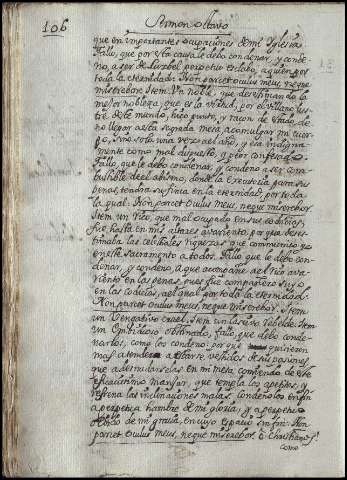 106 Sermon Octavo
que en importantes ocupaciones de mi Iglesia.
Fallo, que por esta causa le debo condenar, y conde-
no, a ser de Luzbel perpetuo esclabo, a quien por
toda la eternidad: Non parcet oculus meus, neque
miserebor. Item. Un noble, que desestimando la
mejor nobleza, que es la virtud, por el villano lus-
tre de este mundo, hizo punto, y razon de estado, de
no llegar a esta sagrada mesa, a comulgar mi cuer-
po, sino sola una vez al año, y esa indigna-
mente como mal dispuesto, y peor confesado.
Fallo, que le debo condenar, y condeno a ser
del abismo, donde la executoria para su
penar, tendra su fuerza en la eternidad, por toda
la qual: Non parcet oculus meus, neque miserebor.
Item un Rico, que mal ocupado en sus codicias,
fue, hasta en mis altares avariento, por que deses-
timaba las celestiales riquezas que communico yo
en este Sacramento a todos. Fallo que le debo con-
denar, y condeno, a que acompañe al rico ava-
riento en las penas, pues fue compañero suyo
en las codicias, al qual por toda la eternidad.
Non parcet oculus meus, neque miserebor. Item
un Vengativo cruel, Item un lascivo rebelde. Item
un Embidioso obstinado, fallo, que debo conde-
narlos, como los condeno: por que quisieron
mas atender a estarse vestidos de sus pasiones
que adesnudarselas en mi mesa, comiendo de este
eficacissimo manjar, que templa los apetitos, y
refrena las inclinaciones malas. Condenolos en fin
a perpetua hambre de mi gloria, y a perpetuo
de mi gracia, en cuyo espacio sin fin: Non
parcet oculus meus, neque miserebor. O Christianos!
como